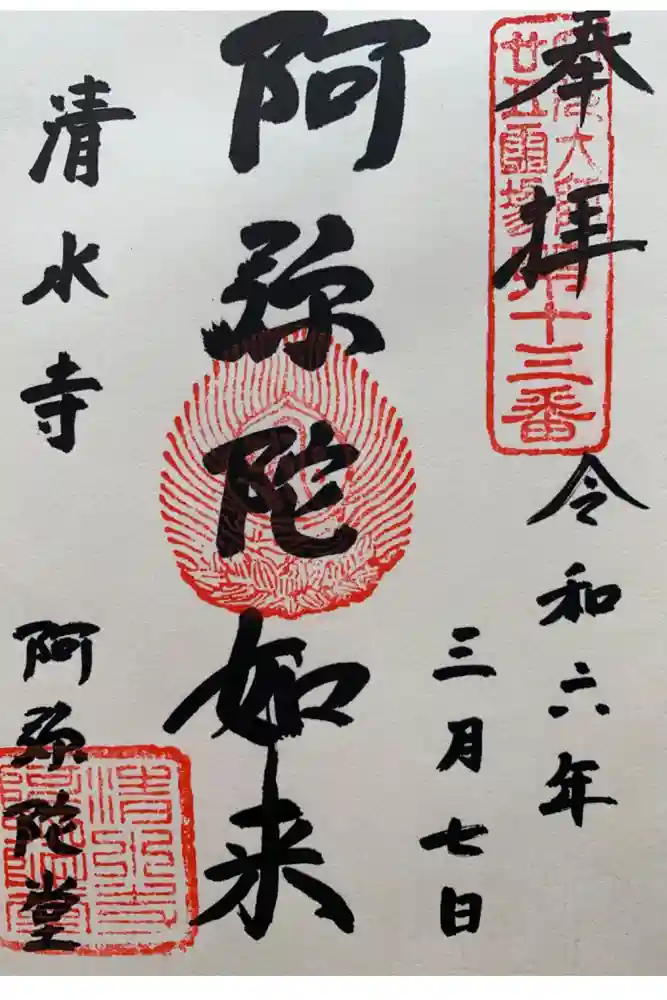 奉拝
大師
廿五霊場第十三番
令和六年
三月七日
阿弥陀如来
清水寺
阿弥陀堂
清水寺